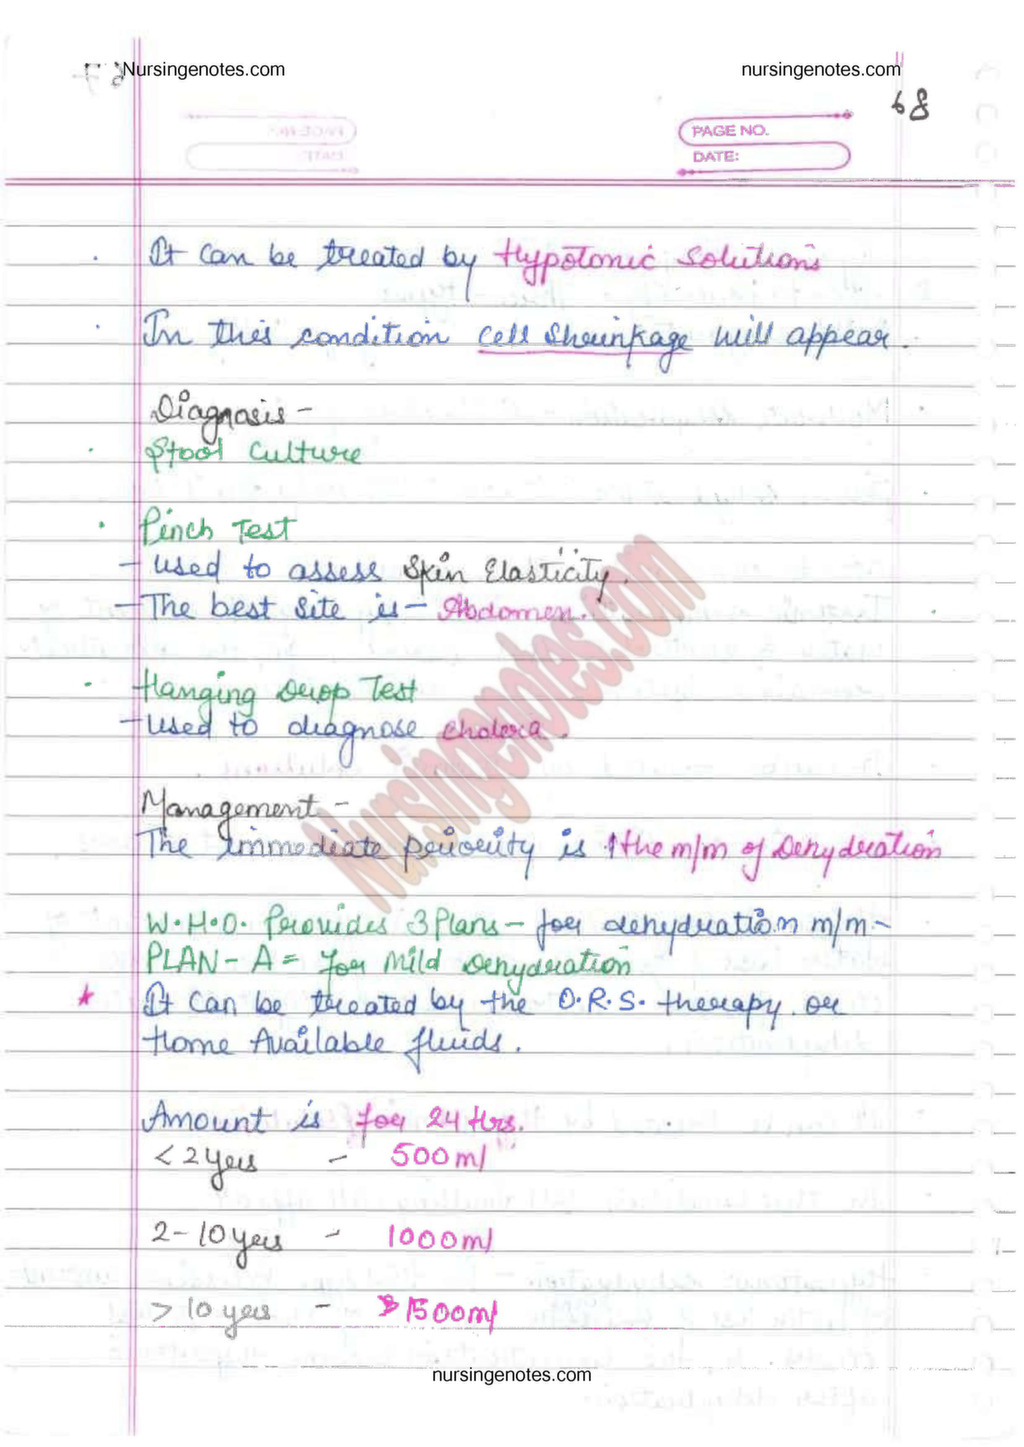 Nursingenotes.com
nursingenotes.com
68
PAGE NO.
DATE:
It can be treated by Hypotonic Solutions
In this condition cell Shrinkage will appear.
Diagnosis -
Stool culture
Pinch Test
- used to assess Skin Elasticity.
- The best site is - Abdomen.
Hanging Drop Test
- used to diagnose cholera.
Management -
The immediate periority is the m/m of Dehydration
W.H.O. Provides 3 Plans - for dehydration m/m -
PLAN - A = for Mild Dehydration
* It can be treated by the O.R.S. therapy. or
Home Available fluids.
Amount is for 24 Hrs.
< 2 yers - 500ml
2 - 10 yers - 1000ml
> 10 yers - 1500ml
Nursingenotes.com
nursingenotes.com